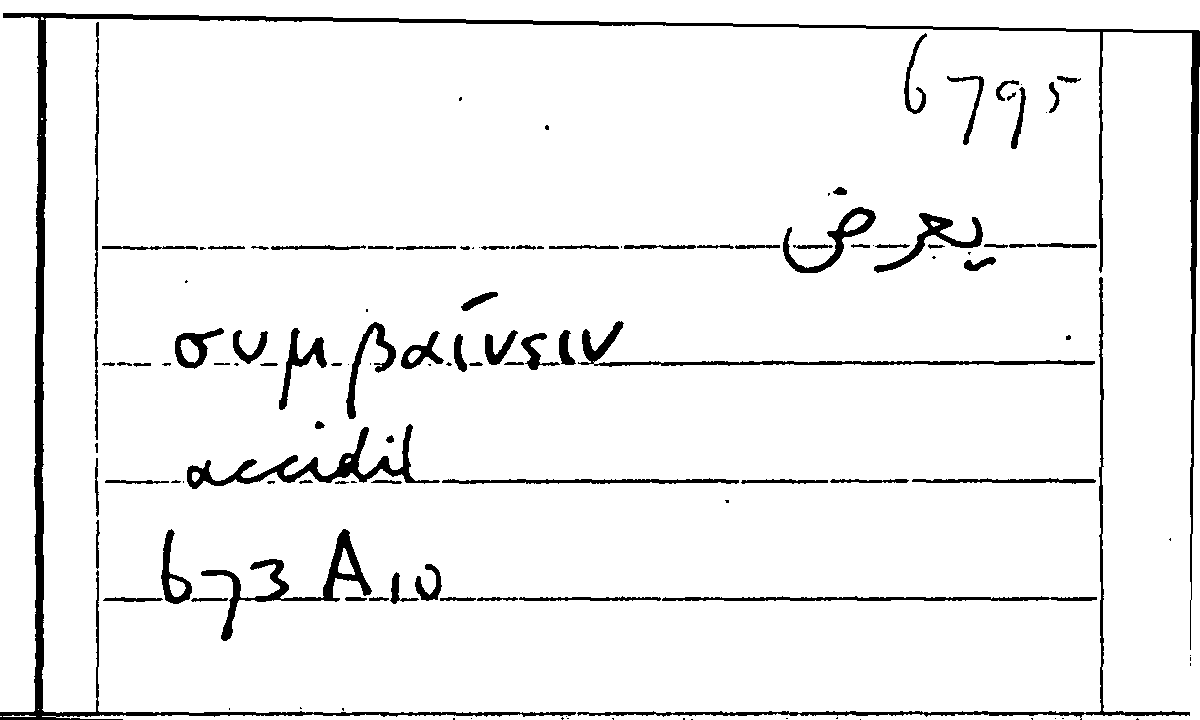 6795
يعرض
συμβαίνειν
accidit
673 A 10